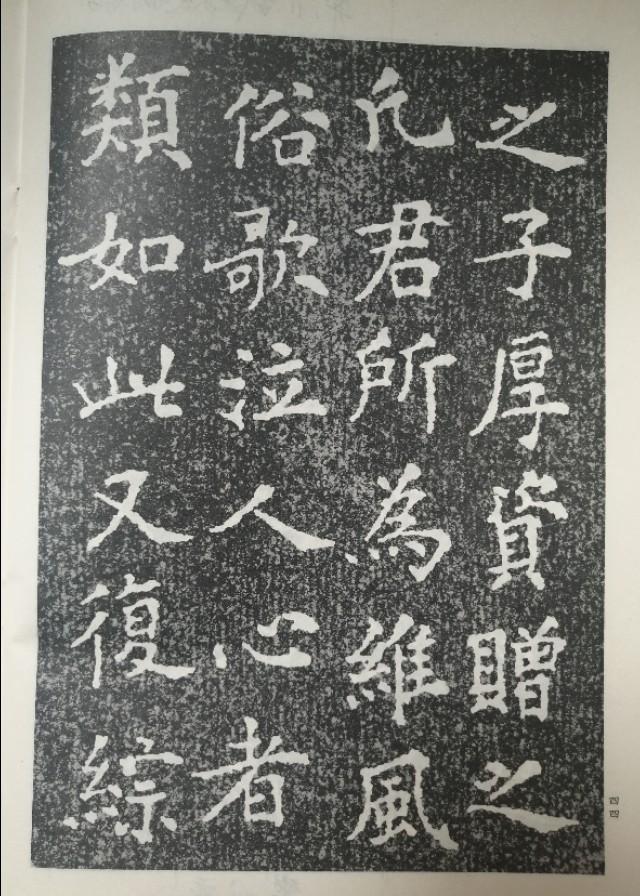 之子厚資贈之
凡君所為維風
俗歌泣人心者
類如此又復綜
四四